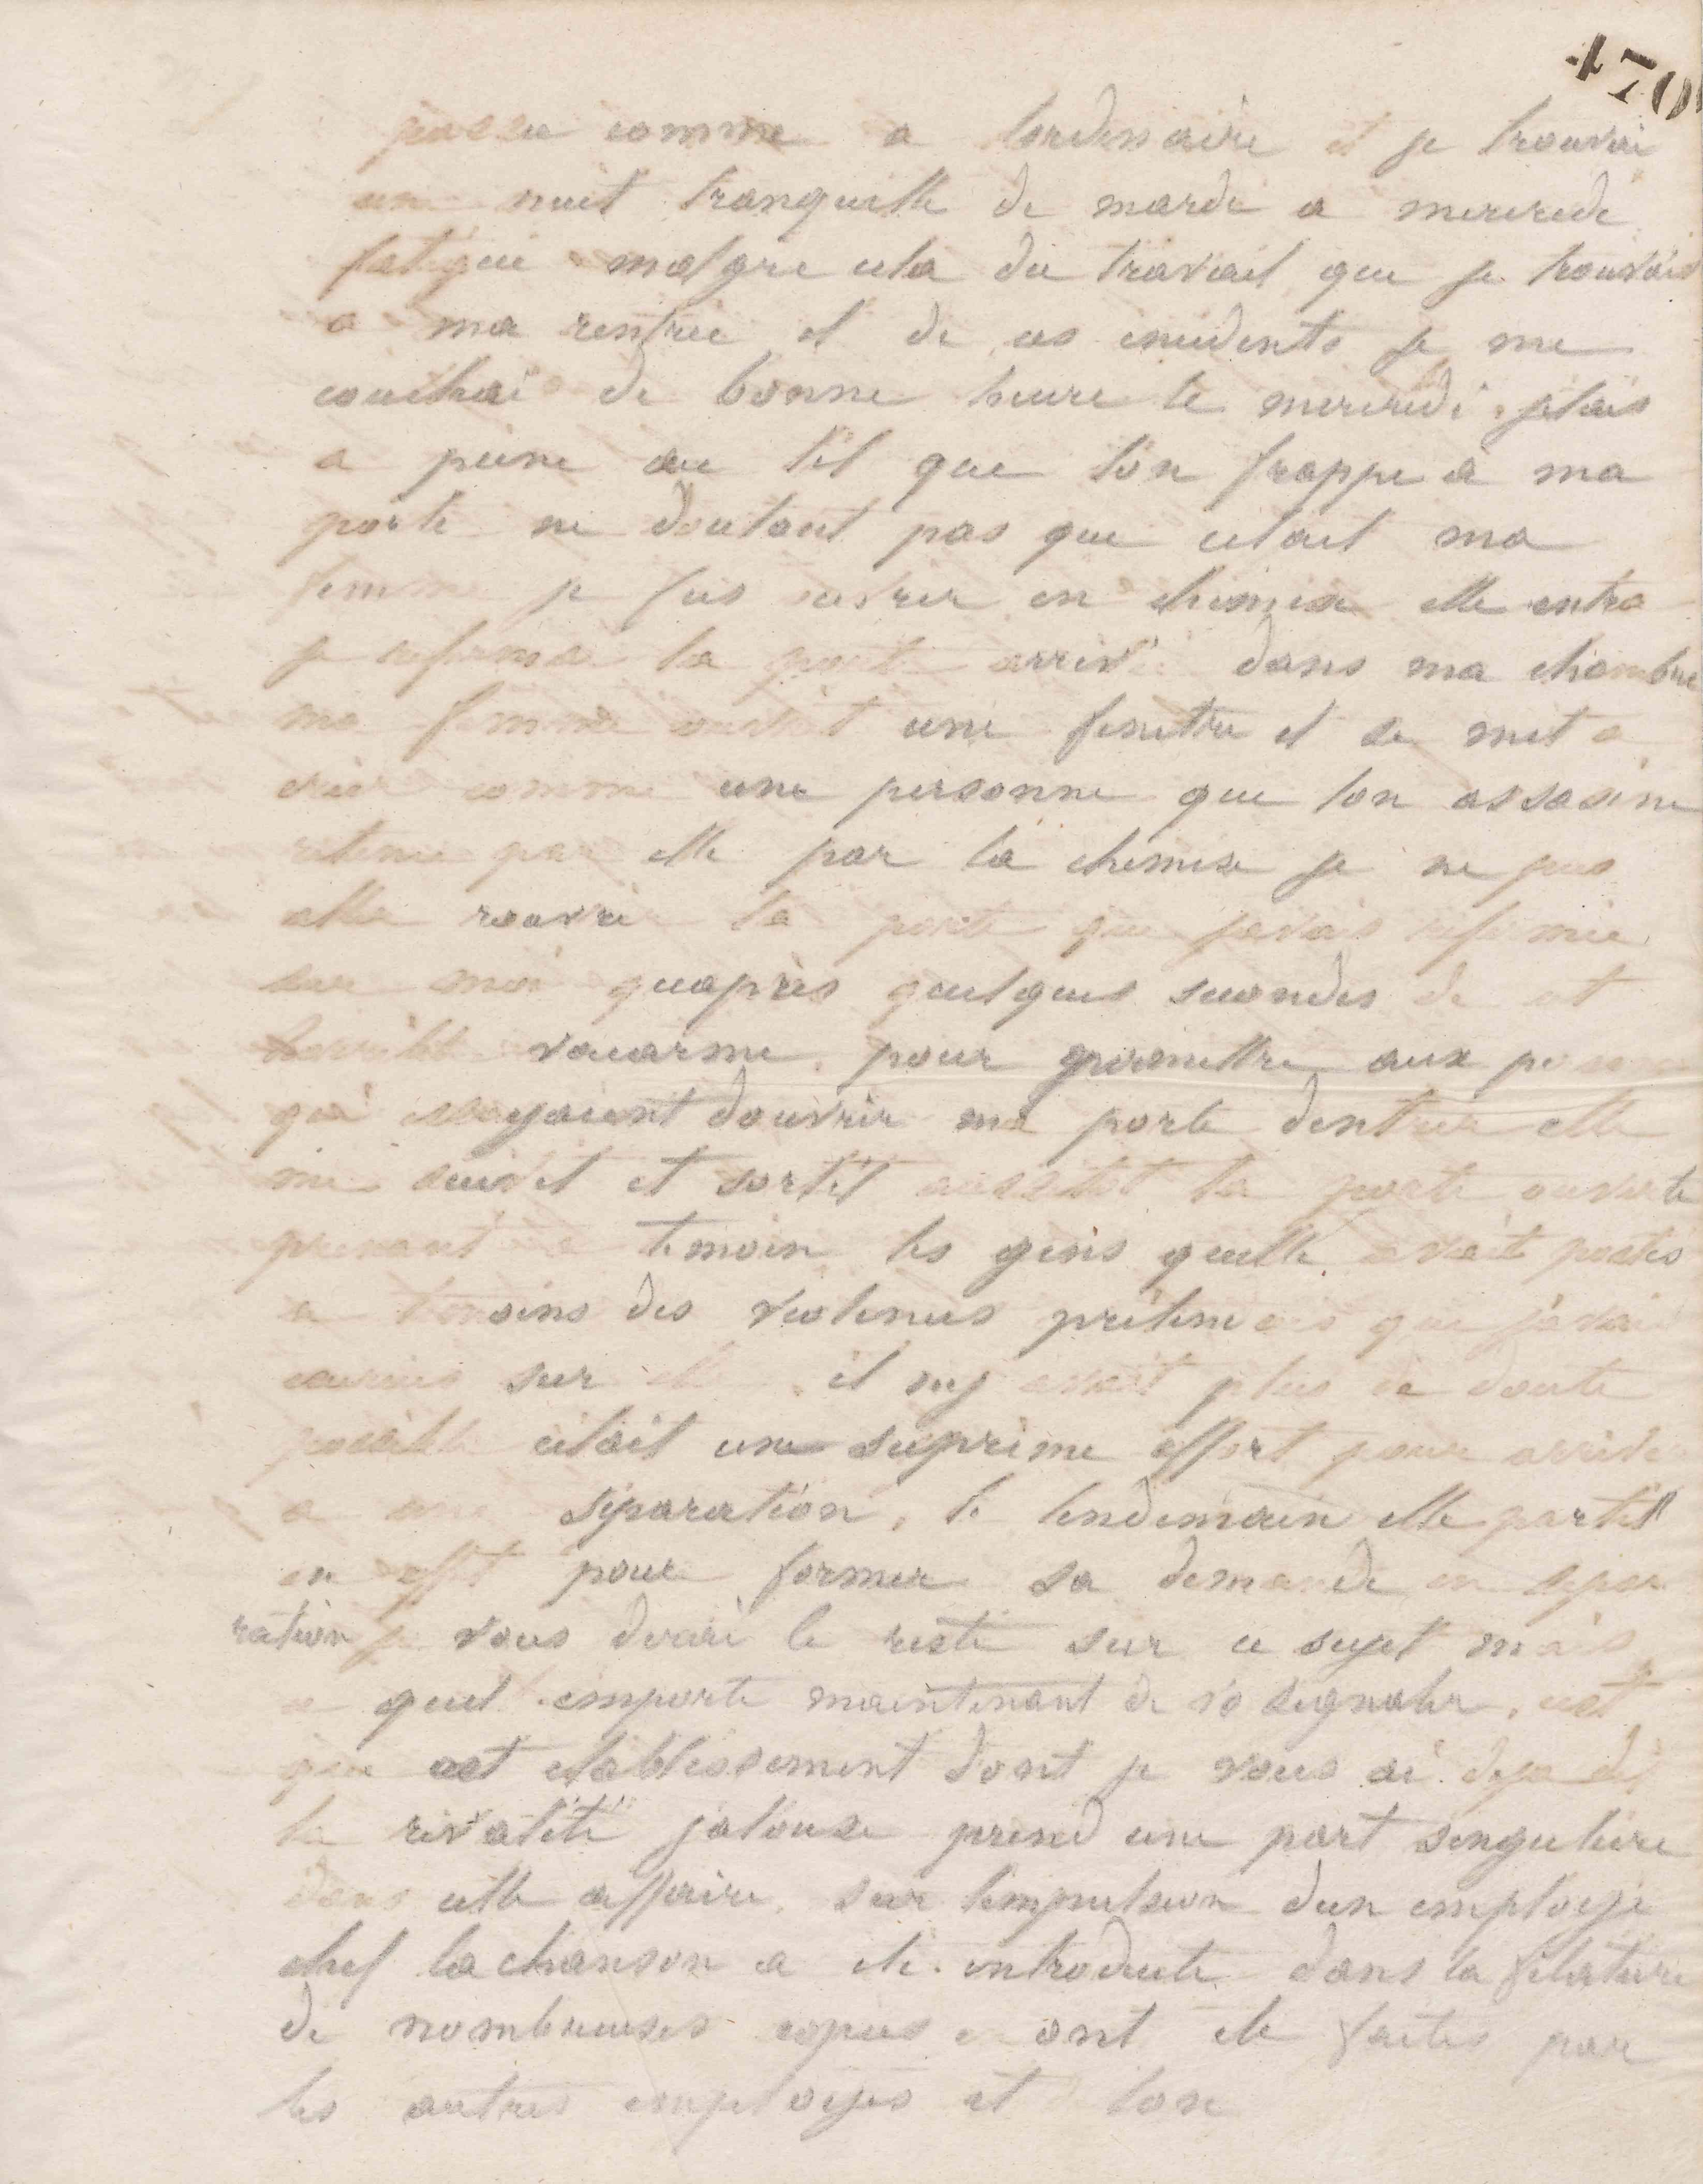 470
passa comme a lordinaire et je trouvai
une nuit tranquille de mardi a mercredi
fatigué malgre cela du travail que je trouvais
a ma rentrée et de ces incidents je me
couchai de bonne heure le mercredi jetais
a peine au lit que l'on frappe à ma
porte ne doutant pas que cetait ma
femme je fus ouvrir en chemise elle entra
je referma la porte arrivé dans ma chambre
ma femme ouvrit une fenetre et se mit a
crier comme une personne que lon assasine
retenu par elle par la chemise je ne pus
aller rouvrir la porte que javais refermée
sur moi quaprès quelques secondes de cet
horrible vacarme pour permettre aux
qui essayaient douvrir ma porte dentrer elle
me suivit et sortit aussitot la porte ouverte
prenant a temoin les gens quelle avait postes
a temoins des violences pretendues que j'avais
exercées sur elle il ny avait plus de doute
possible cetait un supreme effort pour arriver
a une séparation, le lendemain elle partit
en effet pour former sa demande en sépa
ration je vous dirai le reste sur ce sujet mais
ce quil importe maintenant de signaler, cest
que cet etablissement dont je vous ai deja dit
la rivalité jalouse prend une part singuliere
dans cette affaire sur limpulsion dun employé
chef la chanson a ete introduite dans la filature
de nombreuses copies en ont ete faites par
les autres employes et lon